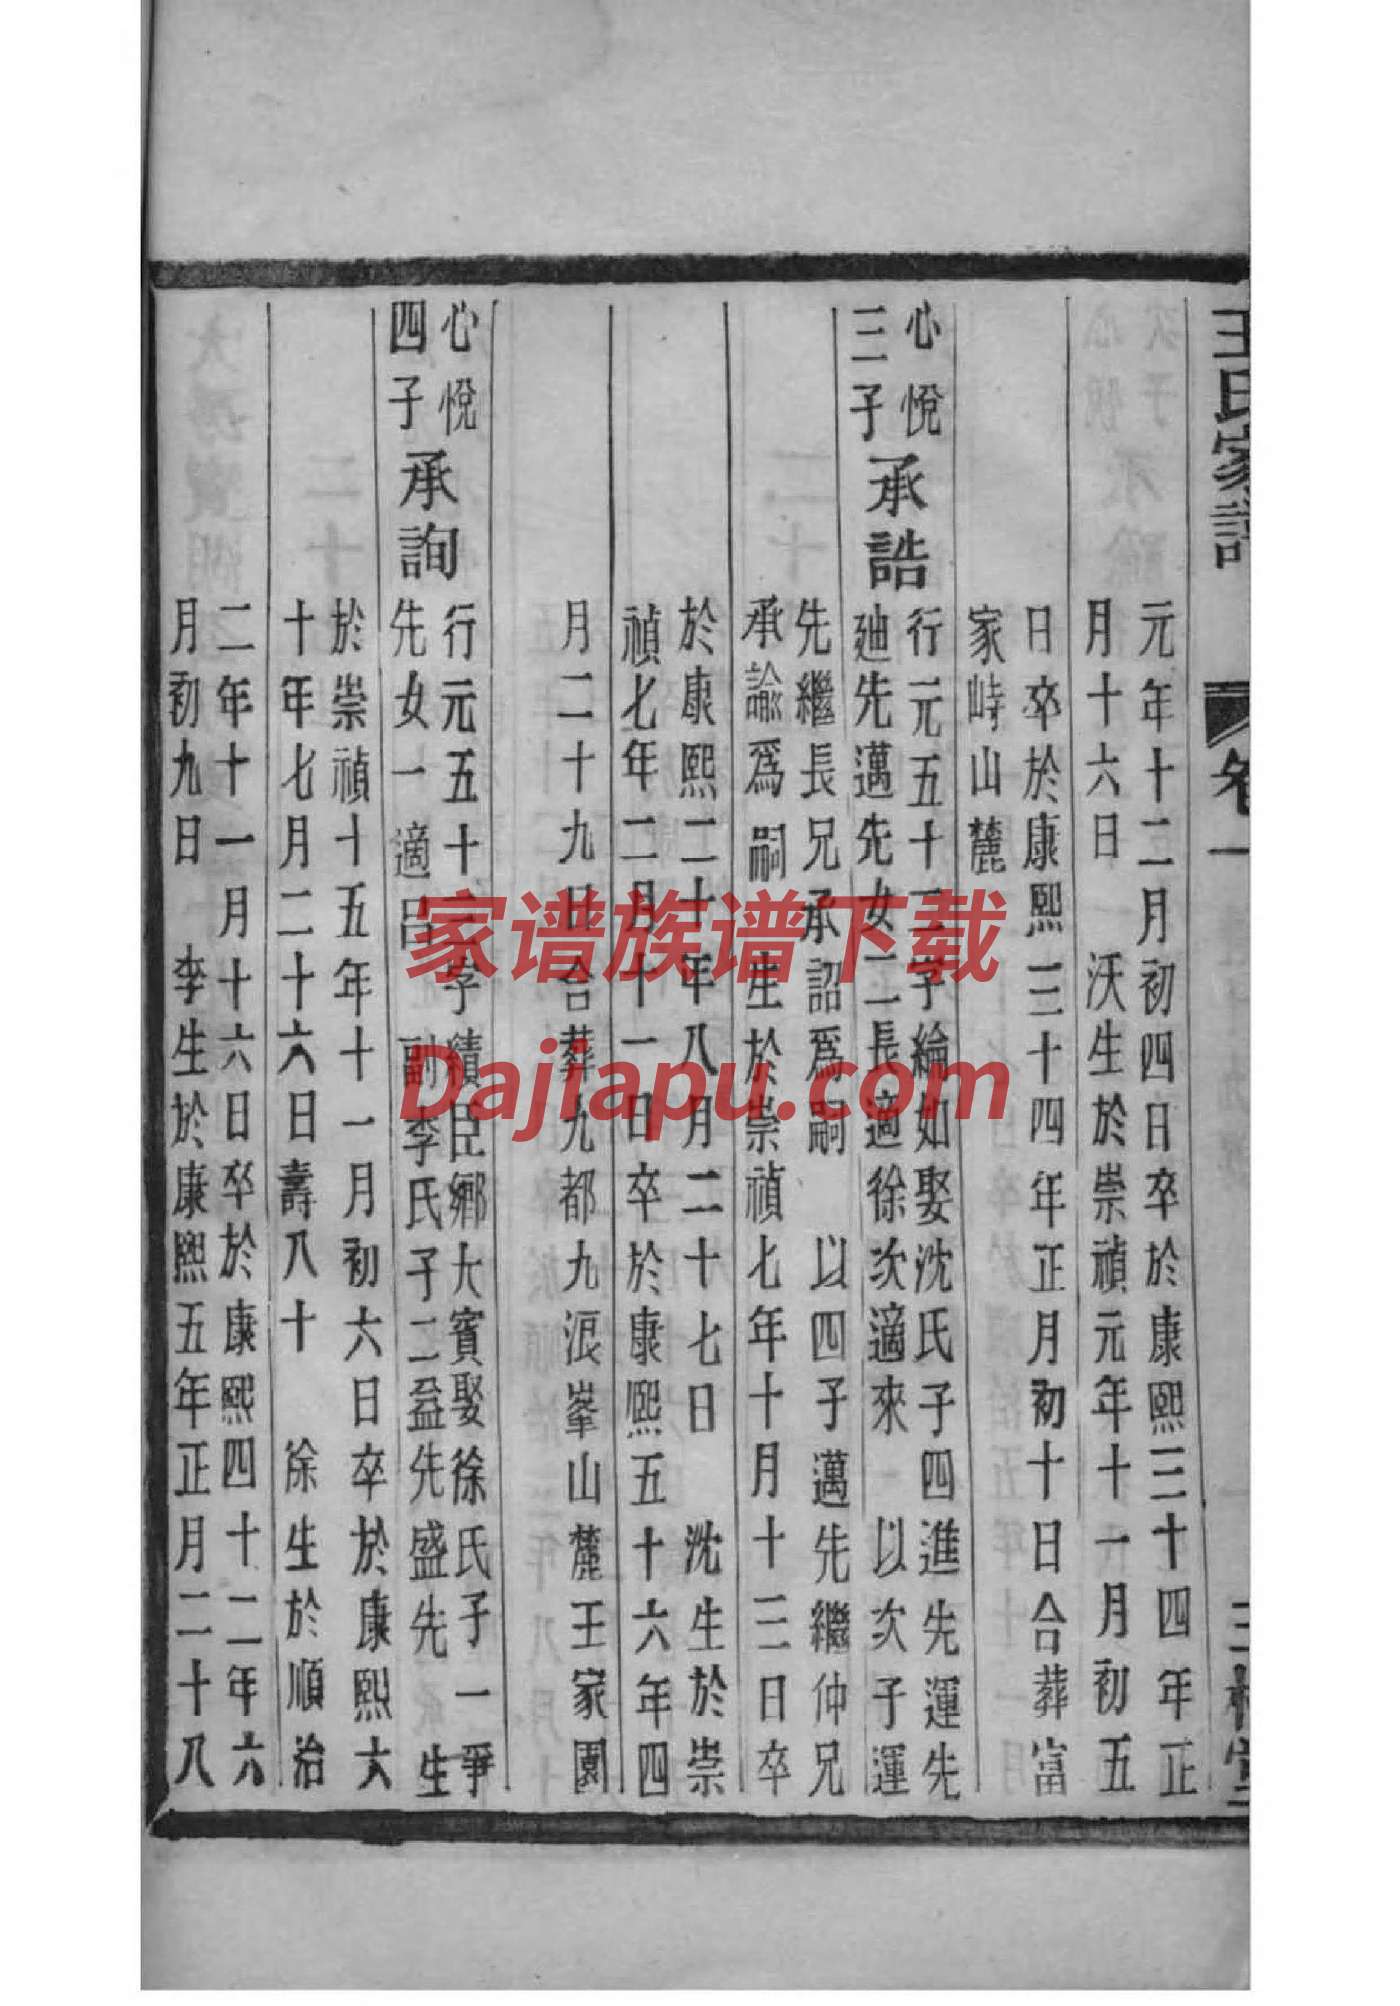 王氏家譜
卷一
三槐堂
元年十二月初四日卒於康熙三十四年正
月十六日 沃生於崇禎元年十一月初五
日卒於康熙三十四年正月初十日合葬富
家峙山麓
心悅
三子
承誥
行元五十三字綸如娶沈氏子四進先運先
廸先邁先女二長適徐次適來 以次子運
先繼長兄承詔爲嗣 以四子邁先繼仲兄
承諭爲嗣 生於崇禎七年十月十三日卒
於康熙二十年八月二十七日 沈生於崇
禎七年二月十一日卒於康熙五十六年四
月二十九日合葬九都九浪峯山麓王家園
心悅
四子
承詢
行元五十 字績臣鄉大賓娶徐氏子一爭
先女一適呂 副李氏子二益先盛先 生
於崇禎十五年十一月初六日卒於康熙六
十年七月二十六日壽八十 徐生於順治
二年十一月十六日卒於康熙四十二年六
月初九日 李生於康熙五年正月二十八
家谱族谱下载
Dajiapu.com